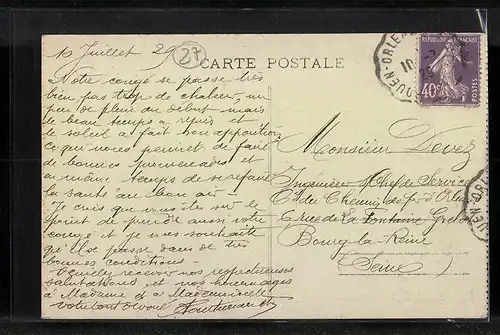 10 Juillet 29
27
CARTE POSTALE
Notre congé se passe très
bien pas trop de chaleur, un
peu de pluie au début mais
le beau temps a repris et
le soleil a fait son apparition
ce qui nous permet de faire
de bonnes promenades et
en même temps de se refaire
la santé au bon air
Je crois que vous êtes sur le
point de prendre aussi votre
congé et je vous souhaite
qu'il se passe dans de très
bonnes conditions
recevoir nos respectueuses
salutations et nos hommages
à Madame et à Mademoiselle
votre tout dévoué
Monsieur Devez
Ingénieur Chef de Service
Cie du Chemin de fr d'Orléans
rue de La Fontaine Grelot
Bourg-la-Reine
(Seine)
ROUEN-ORLEA
10
RÉPUBLIQUE FRANÇAISE
40c
POSTES